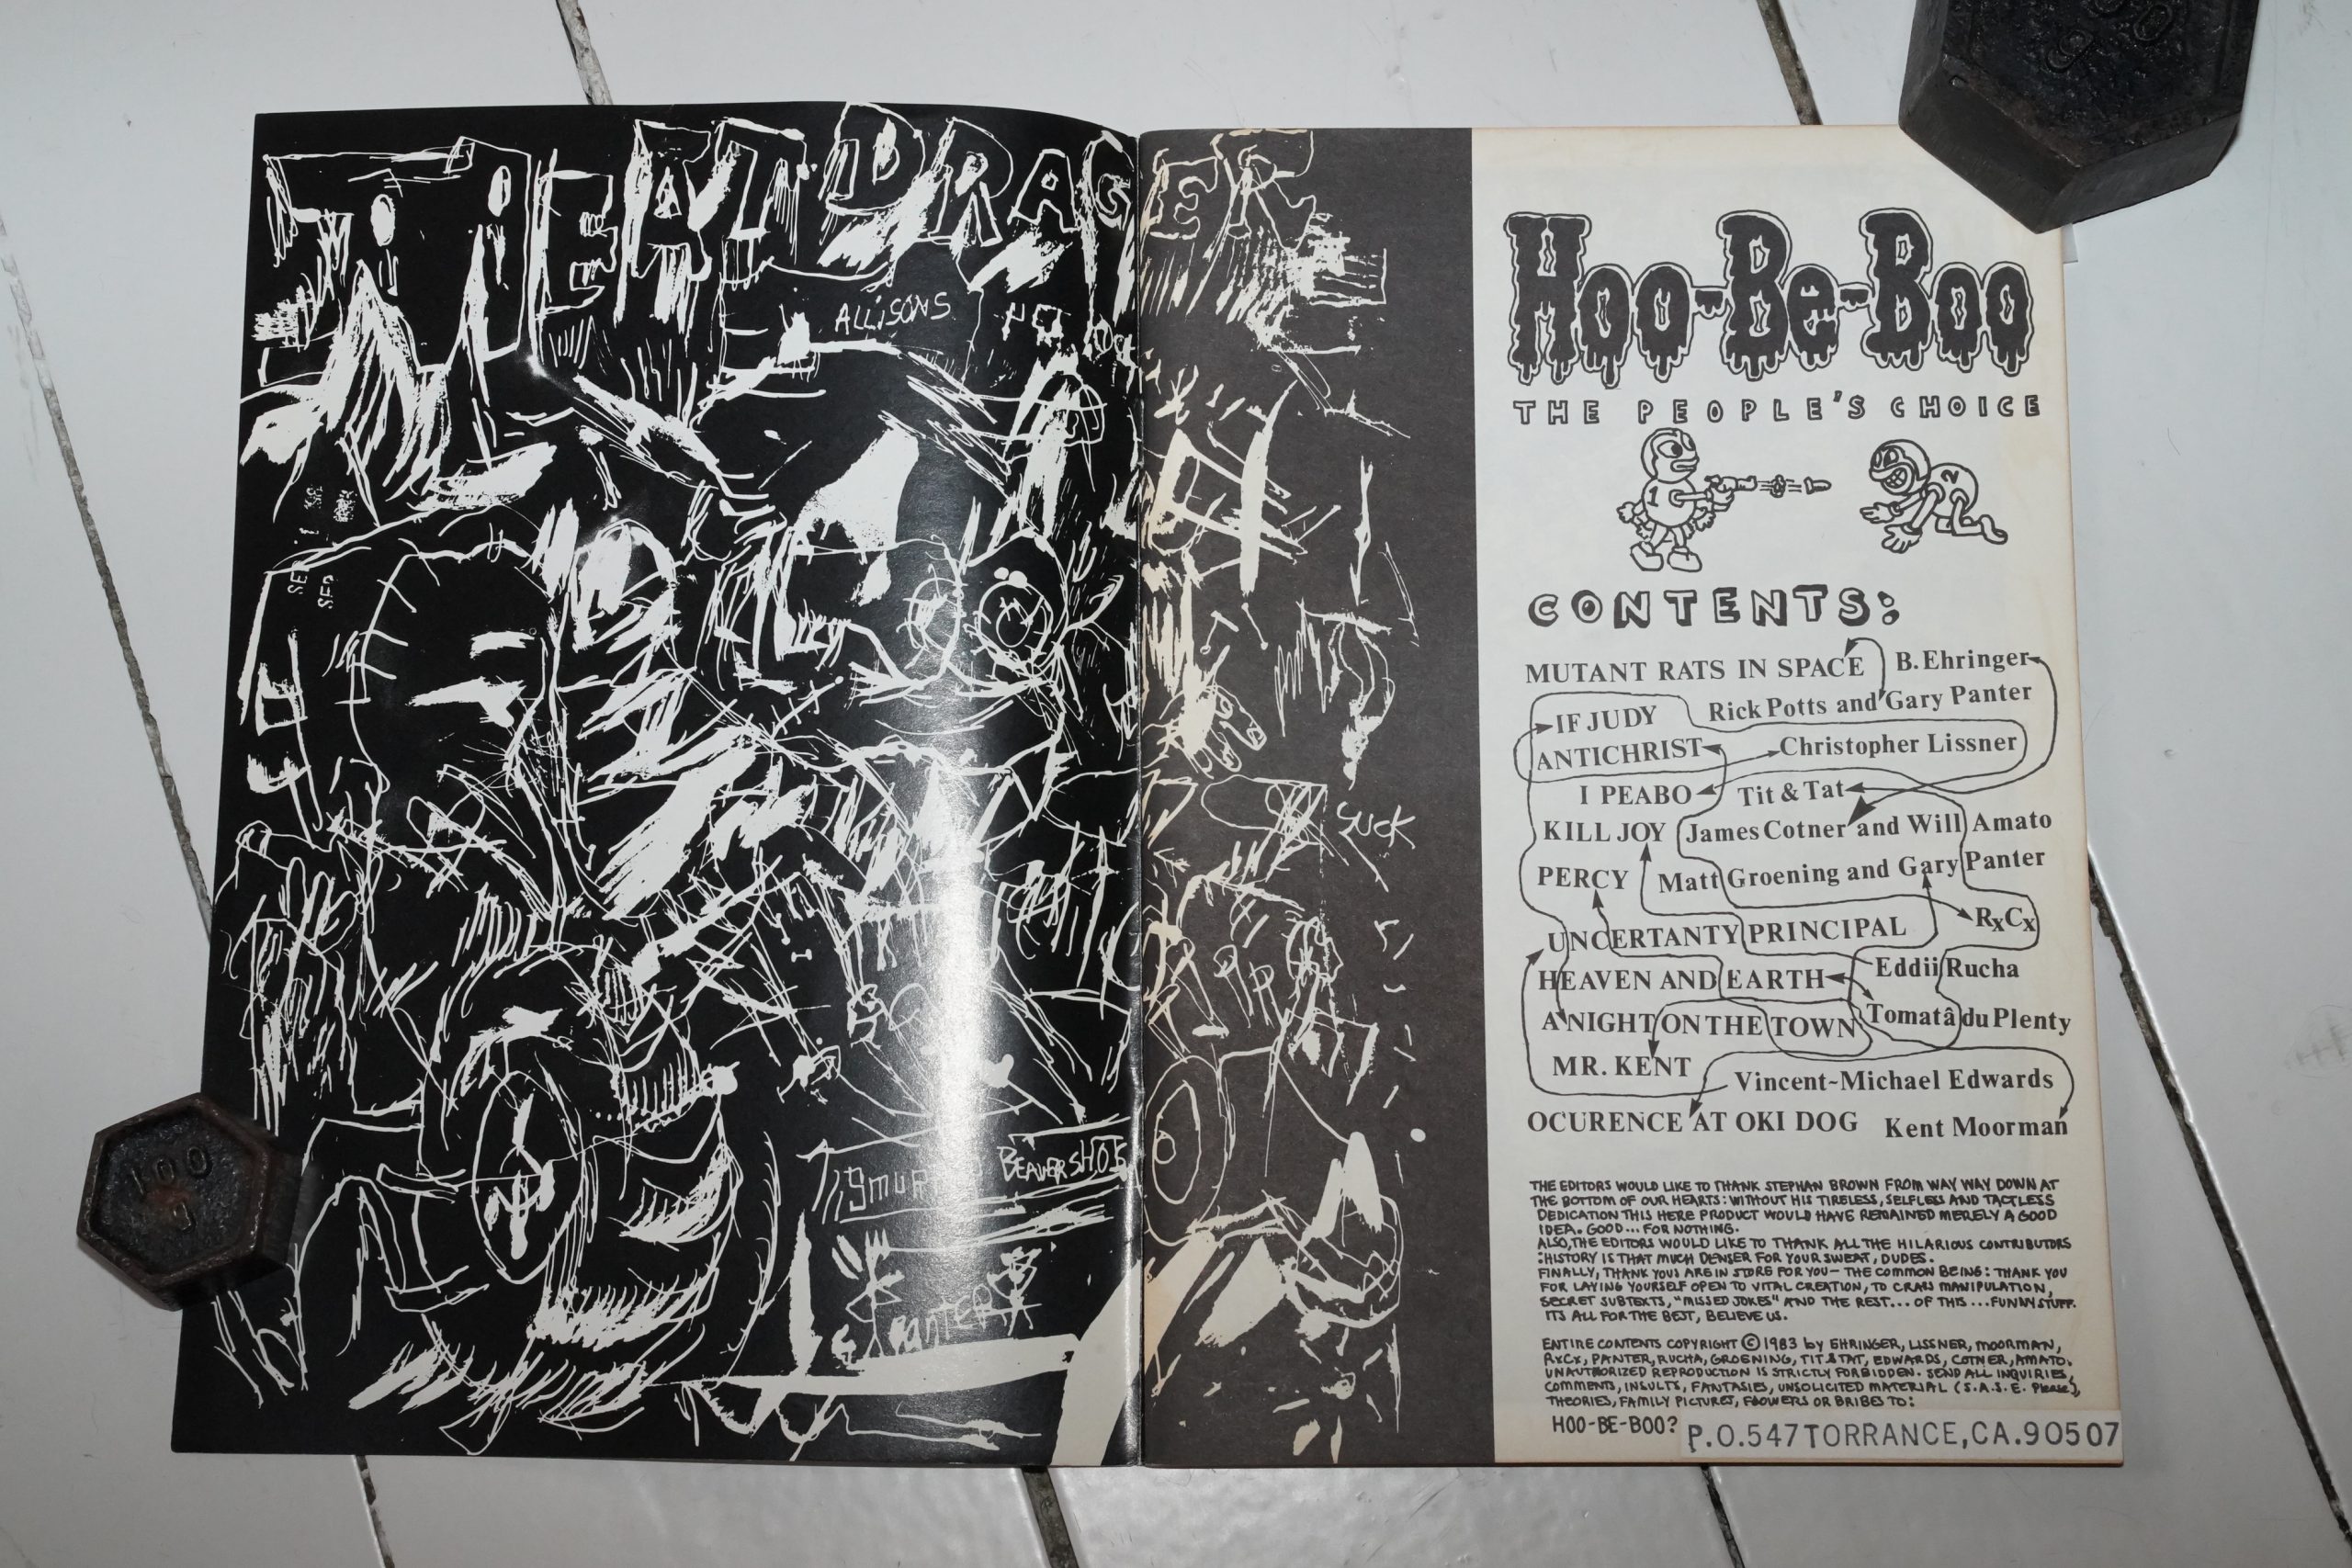 MEAT DRAGER
ALLISONS
SUCK
BEAVERSHOTS
PANTER
HOO-BE-BOO
THE PEOPLE'S CHOICE
1
2
CONTENTS:
MUTANT RATS IN SPACE B. Ehringer
Rick Potts and Gary Panter
IF JUDY
ANTICHRIST Christopher Lissner
I PEABO Tit & Tat
KILL JOY James Cotner and Will Amato
PERCY Matt Groening and Gary Panter
RxCx
UNCERTANTY PRINCIPAL
Eddii Rucha
HEAVEN AND EARTH
Tomatâ du Plenty
A NIGHT ON THE TOWN
MR. KENT
Vincent-Michael Edwards
OCURENCE AT OKI DOG Kent Moorman
THE EDITORS WOULD LIKE TO THANK STEPHAN BROWN FROM WAY WAY DOWN AT
THE BOTTOM OF OUR HEARTS: WITHOUT HIS TIRELESS, SELFLESS AND TACTLESS
DEDICATION THIS HERE PRODUCT WOULD HAVE REMAINED MERELY A GOOD
IDEA. GOOD... FOR NOTHING.
ALSO, THE EDITORS WOULD LIKE TO THANK ALL THE HILARIOUS CONTRIBUTORS
:HISTORY IS THAT MUCH DENSER FOR YOUR SWEAT, DUDES.
FINALLY, THANK YOUS ARE IN STORE FOR YOU— THE COMMON BEING: THANK YOU
FOR LAYING YOURSELF OPEN TO VITAL CREATION, TO CRASS MANIPULATION,
SECRET SUBTEXTS, "MISSED JOKES" AND THE REST... OF THIS ... FUNNY STUFF.
ITS ALL FOR THE BEST, BELIEVE US.
ENTIRE CONTENTS COPYRIGHT © 1983 by EHRINGER, LISSNER, MOORMAN,
RxCx, PANTER, RUCHA, GROENING, TIT & TAT, EDWARDS, COTNER, AMATO.
UNAUTHORIZED REPRODUCTION IS STRICTLY FORBIDDEN. SEND ALL INQUIRIES,
COMMENTS, INSULTS, FANTASIES, UNSOLICITED MATERIAL (S.A.S.E. Please),
THEORIES, FAMILY PICTURES, FLOWERS OR BRIBES TO:
HOO-BE-BOO? P.O.547 TORRANCE,CA.90507
100